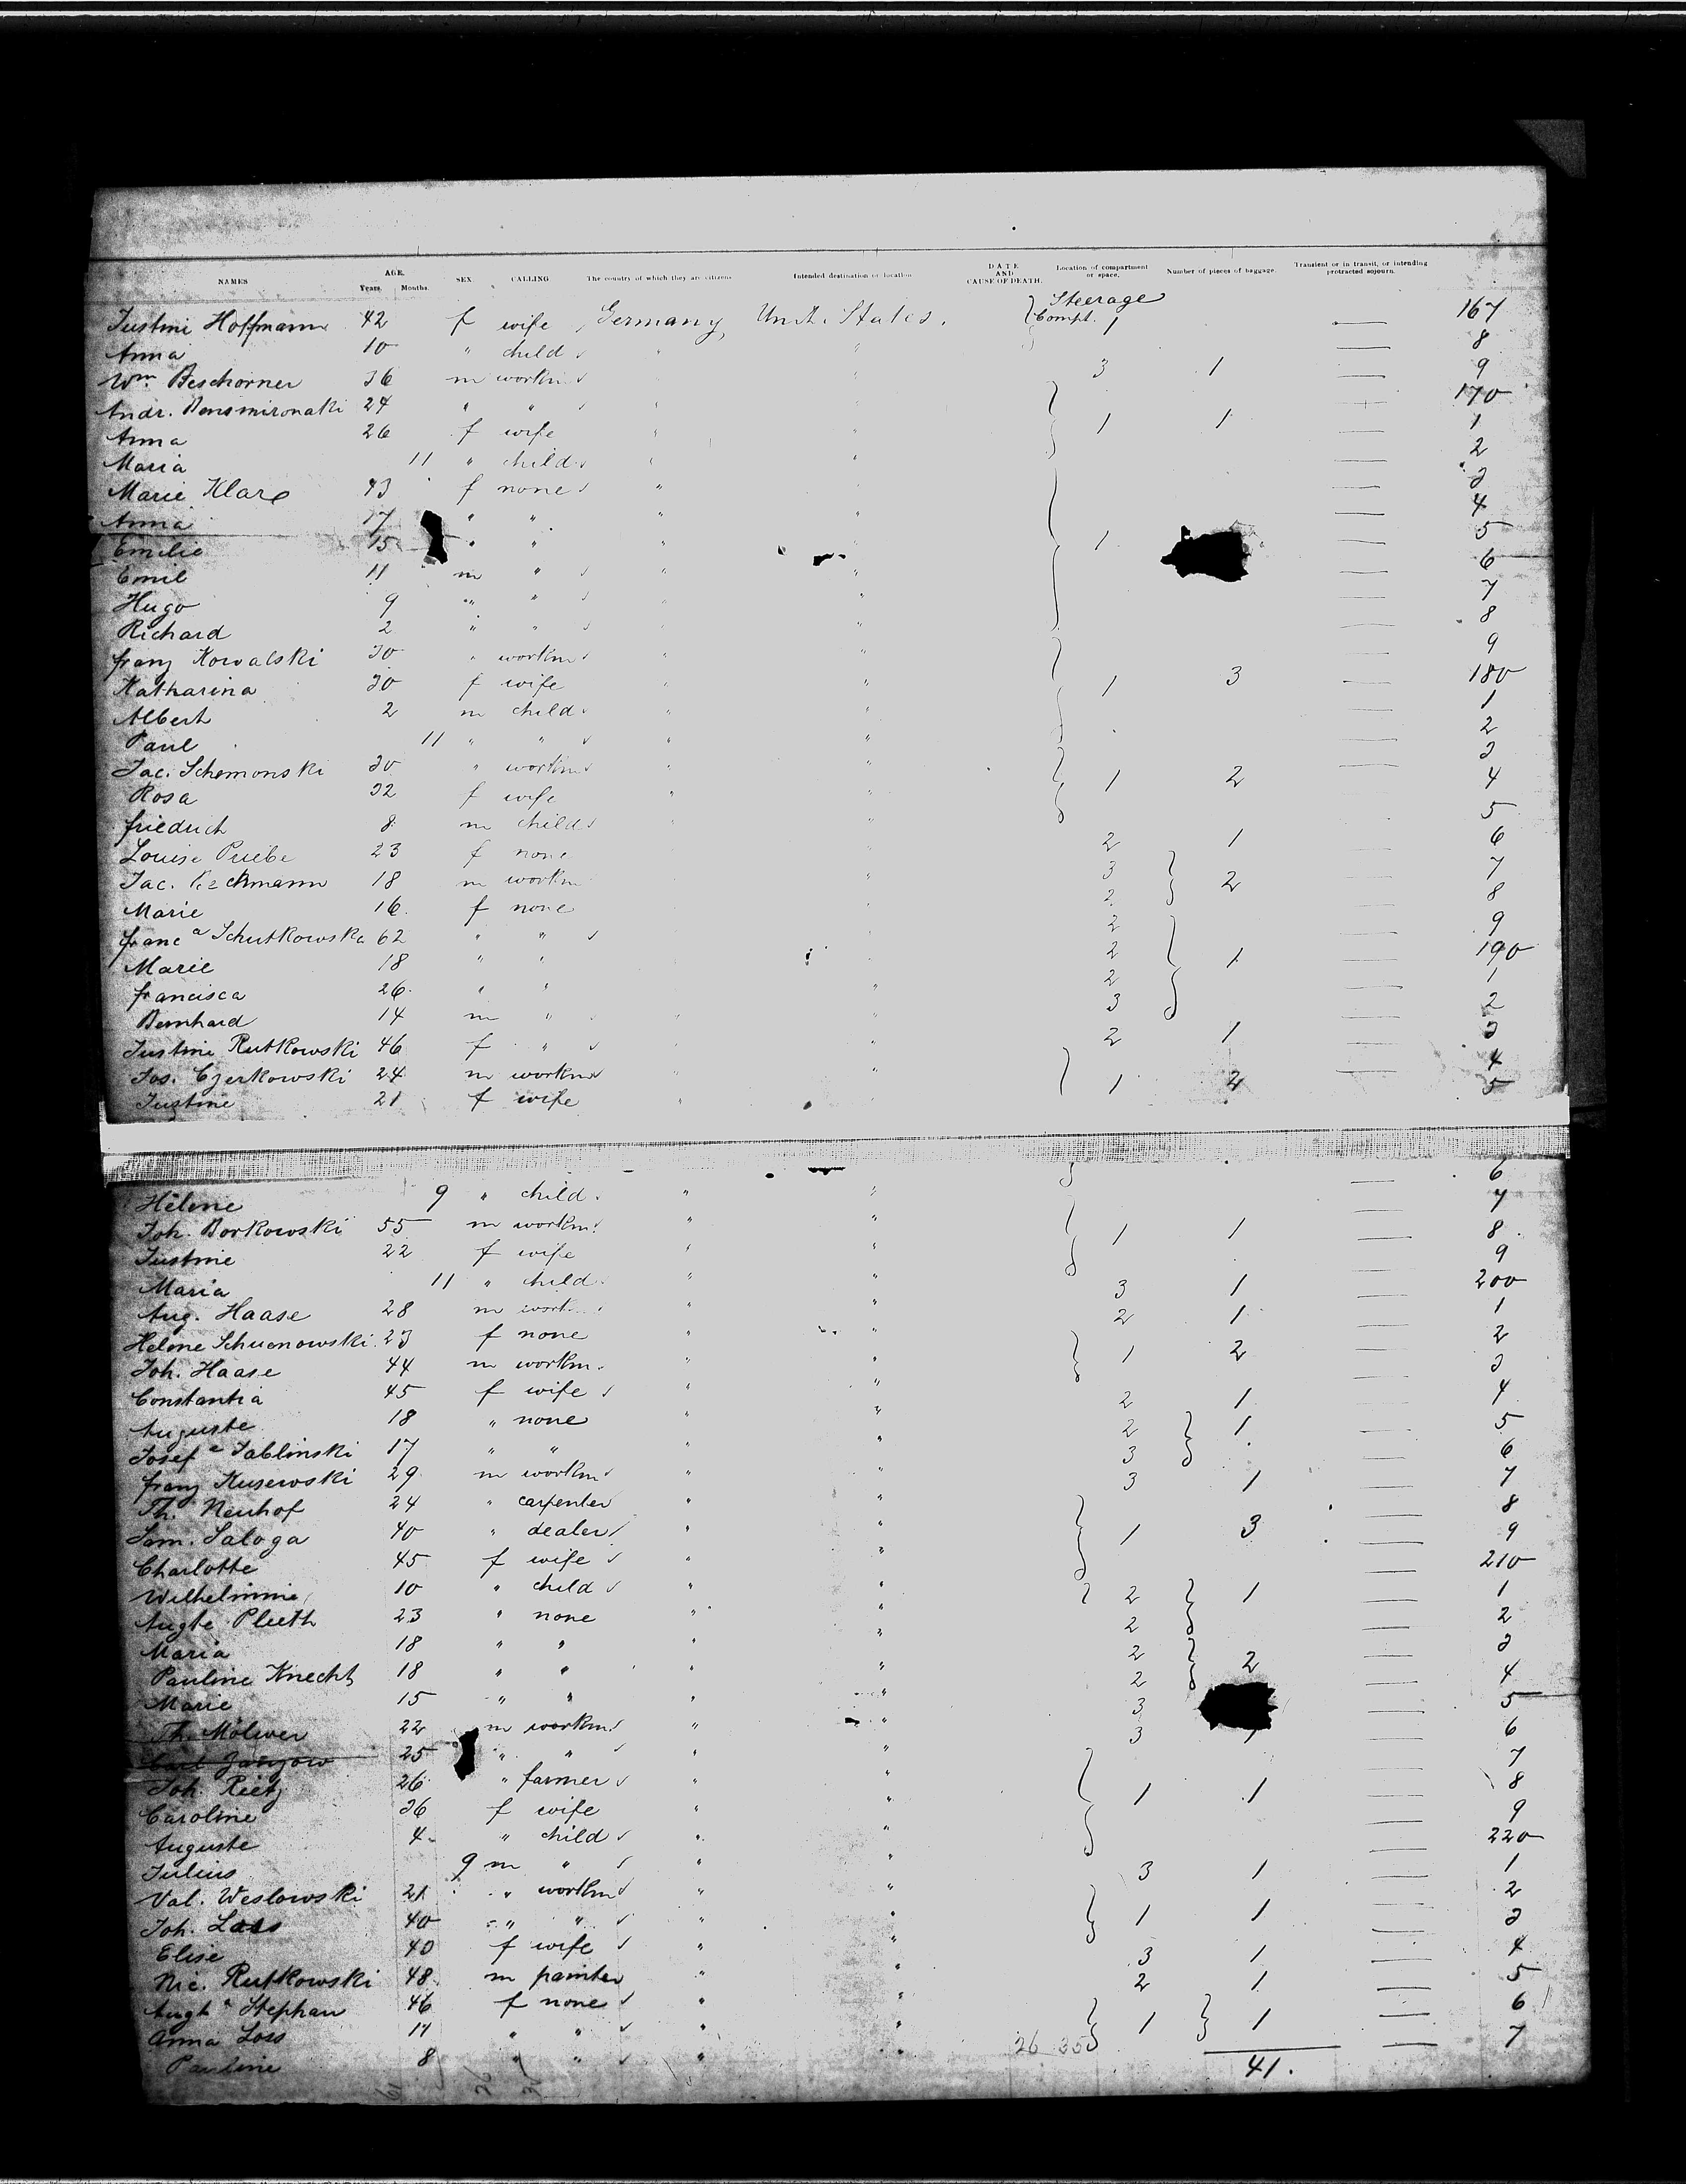 NAMES AGE. Years. Months. SEX CALLING The country of which they are citizens Intended destination or location DATE AND CAUSE OF DEATH. Location of compartment or space. Number of pieces of baggage. Transient or in transit, or intending protracted sojourn.
Justine Hoffmann 42 f wife Germany, United States. Steerage Compt. 1 — 167
Anna 10 " child " " — 8
Wm. Beschorner 36 m workm " " 3 1 — 9
Andr. 24 " " " " — 170
Anna 26 f wife " " 1 1 — 1
Maria 11 " child " " — 2
Marie Klare 43 f none " " — 3
Anna 17 " " " " — 4
Emilie 15 " " " " 1 — 5
Emil 11 m " " " — 6
Hugo 9 " " " " — 7
Richard 2 " " " " — 8
Franz Kowalski 30 " workm " " — 9
Katharina 30 f wife " " 1 3 — 180
Albert 2 m child " " — 1
Paul 11 " " " " — 2
Jac. Schemonski 30 " workm " " — 3
Rosa 32 f wife " " 1 2 — 4
Friedrich 8 m child " — 5
Louise Priebe 23 f none " 2 1 — 6
Jac. 18 m workm " 3 2 — 7
Marie 16 f none " 2 — 8
Franca Schutkowska 62 " " 2 — 9
Marie 18 " " 2 1 — 190
Francisca 26 " " " 2 — 1
Bernhard 14 m " " " 3 — 2
Justine Rutkowski 46 f " " 2 1 — 3
Jos. Czerkowski 24 m workm " " — 4
Justine 21 f wife " 1 2 5
Helene 9 " child " " — 6
Joh. Borkowski 55 m workm " " — 7
Justine 22 f wife " " 1 1 — 8
Maria 11 " child " " — 9
Aug. Haase 28 m workm " " 3 1 — 200
Helene 23 f none " " 2 1 — 1
Joh. Haase 44 m workm " " — 2
Constantia 45 f wife " " 1 2 — 3
Auguste 18 " none " " 2 1 — 4
Josefa Jablinski 17 " " " " 2 1 — 5
Franz Kusewski 29 m workm " " 3 — 6
Th. Neuhof 24 " carpenter " " 3 1 — 7
Sam. Saloga 40 " dealer " " — 8
Charlotte 45 f wife " " 1 3 — 9
Wilhelmine 10 " child " " — 210
Augte Pleeth 23 " none " " 2 1 — 1
Maria 18 " " " " 2 — 2
Pauline Knecht 18 " " " " 2 2 — 3
Marie 15 " " " " 2 — 4
Th. 22 m workm " " 3 — 5
25 " " " " 3 — 6
Joh. Rietz 26 " farmer " " — 7
Caroline 36 f wife " " 1 1 — 8
Auguste 4 " child " " — 9
Julius 9 m " " " — 220
Val. Weslowski 21 " workm " " 3 1 — 1
Joh. Lass 40 " " " " — 2
Elise 40 f wife " " 1 1 — 3
Nic. Rutkowski 48 m painter " " 3 1 — 4
Augta Stephan 46 f none " " 2 1 — 5
Anna Loss 17 " " " " 1 1 — 6
Pauline 8 " " " — 7
26 35
41.